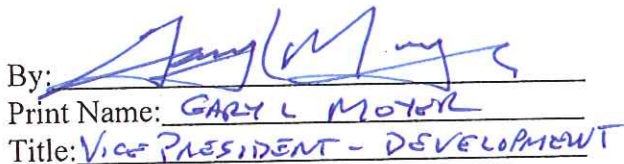 By:
Print Name: GARY L MOYER
Title: VICE PRESIDENT - DEVELOPMENT